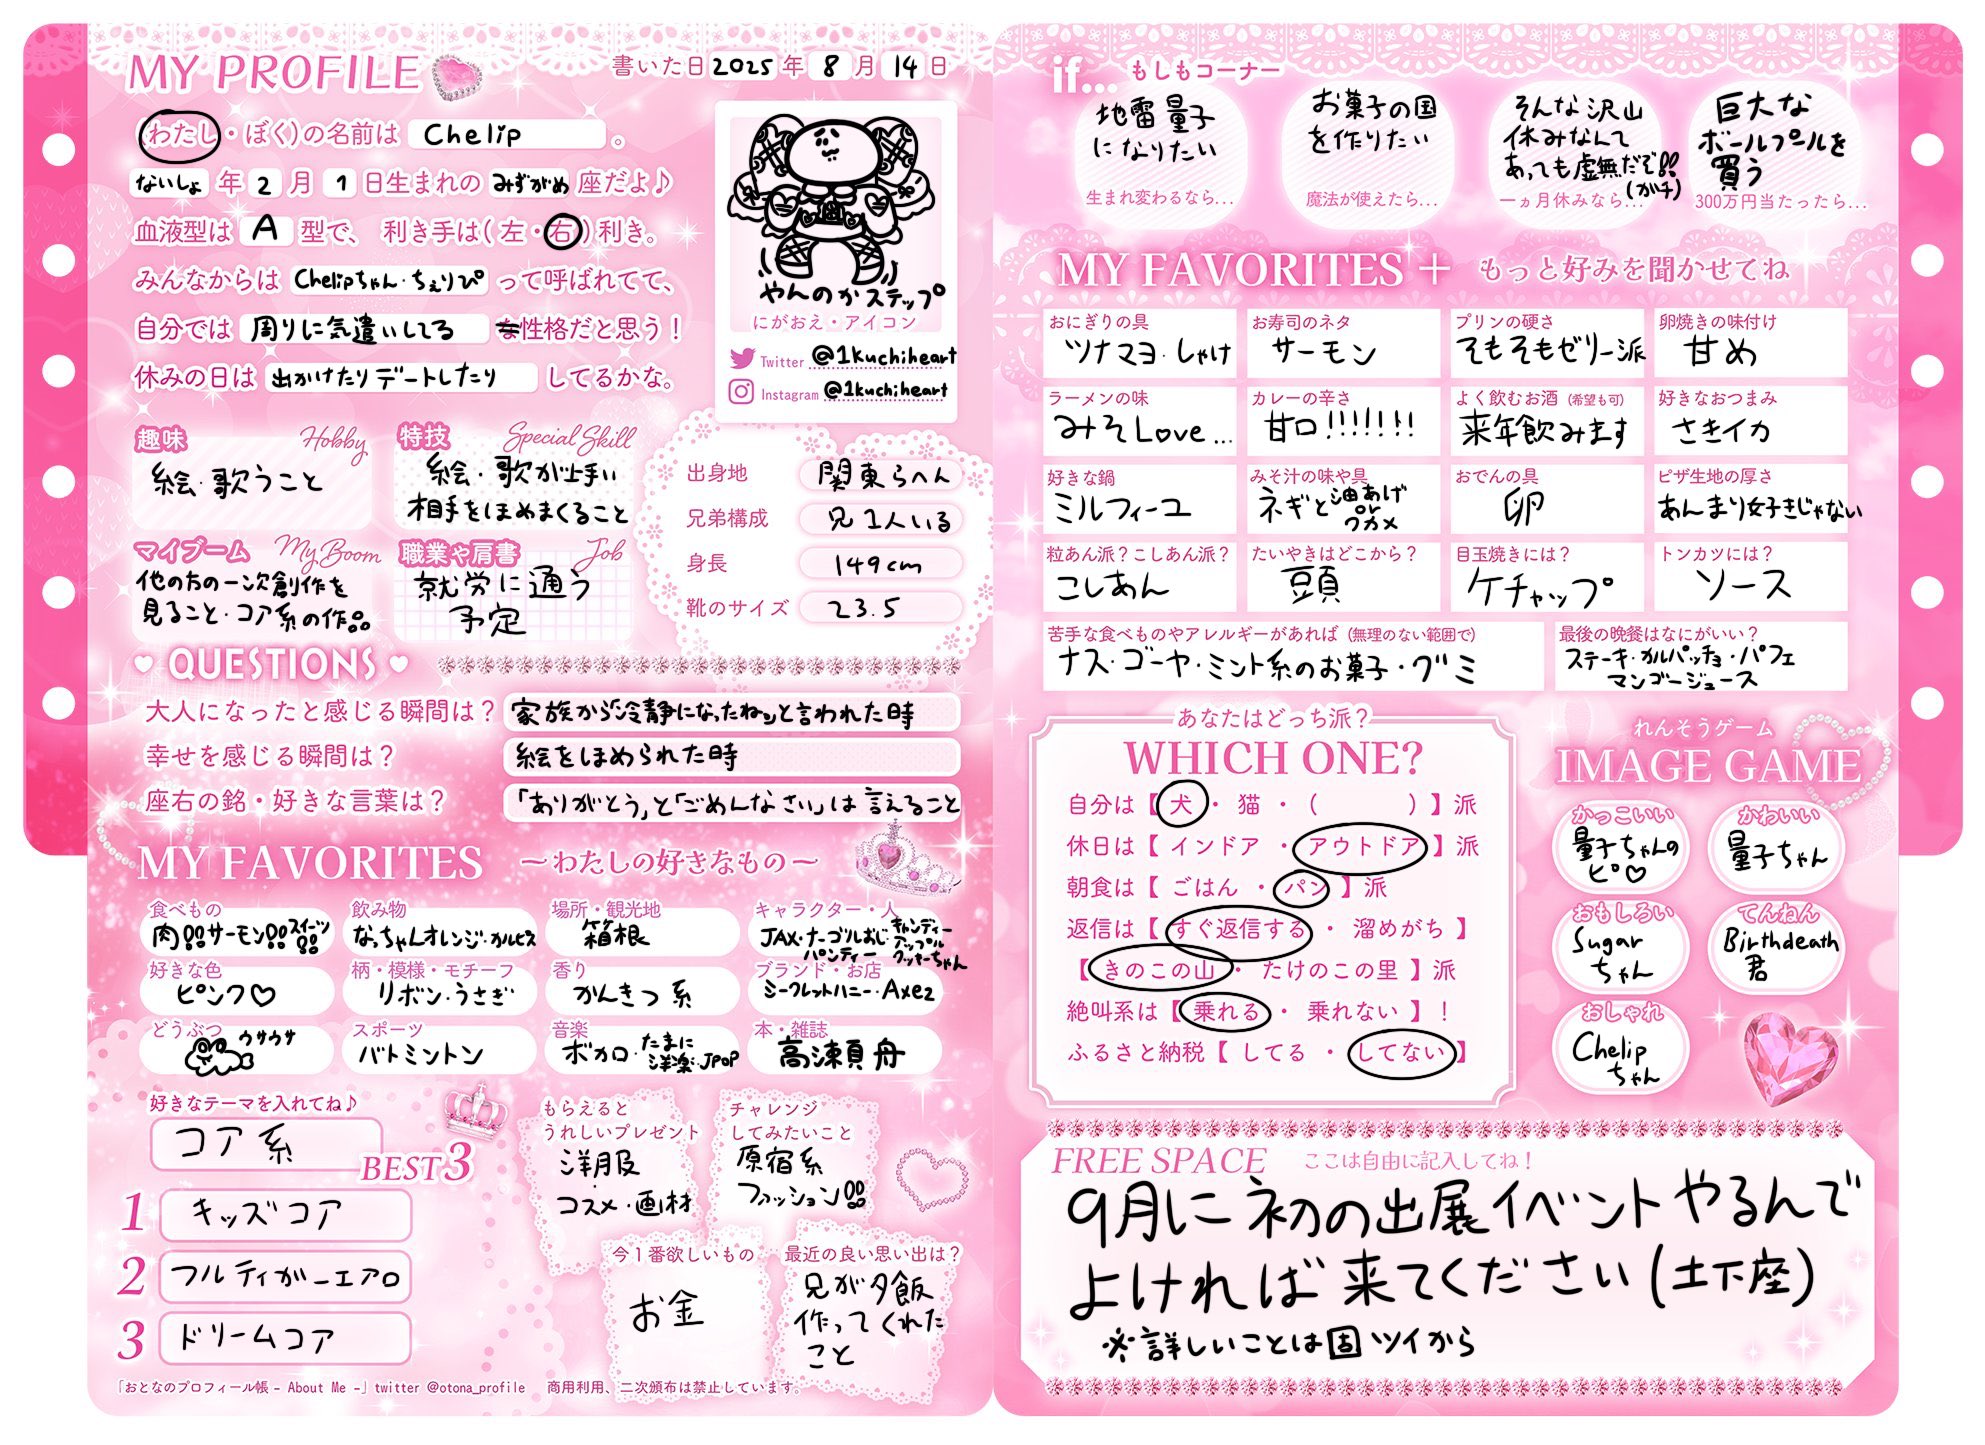 MY PROFILE
書いた日 2025 年 8 月 14 日
(わたし・ぼく)の名前は Chelip 。
ないしょ 年 2 月 1 日生まれの みずがめ 座だよ♪
血液型は A 型で、 利き手は(左・右)利き。
みんなからは Chelipちゃん・ちぇりぴ って呼ばれてて、
自分では 周りに気遣いしてる な性格だと思う！
休みの日は 出かけたりデートしたり してるかな。
やんのかステップ
にがおえ・アイコン
Twitter @1kuchiheart
Instagram @1kuchiheart
趣味 Hobby
絵・歌うこと
特技 Special Skill
絵・歌が上手い
相手をほめまくること
マイブーム My Boom
他の方の一次創作を
見ること・コア系の作品
職業や肩書 Job
就労に通う
予定
出身地 関東らへん
兄弟構成 兄1人いる
身長 149cm
靴のサイズ 23.5
QUESTIONS
大人になったと感じる瞬間は？ 家族から「冷静になったね」と言われた時
幸せを感じる瞬間は？ 絵をほめられた時
座右の銘・好きな言葉は？ 「ありがとう」と「ごめんなさい」は言えること
MY FAVORITES ～わたしの好きなもの～
食べもの
肉!!サーモン!!スイーツ!!
飲み物
なっちゃんオレンジ・カルピス
場所・観光地
箱根
キャラクター・人
JAX・ナーゴ
パンティー
キャンディー
アップル
クッキーちゃん
好きな色
ピンク♡
柄・模様・モチーフ
リボン・うさぎ
香り
かんきつ系
ブランド・お店
シークレットハニー・Axes
どうぶつ
ウサウサ
スポーツ
バトミントン
音楽
ボカロ・たまに
洋楽・JPOP
本・雑誌
高瀬舟
好きなテーマを入れてね♪
コア系
BEST3
1 キッズコア
2 フルティガーエアロ
3 ドリームコア
もらえると
うれしいプレゼント
洋服
コスメ・画材
チャレンジ
してみたいこと
原宿系
ファッション!!
今1番欲しいもの
お金
最近の良い思い出は？
兄が夕飯
作ってくれた
こと
「おとなのプロフィール帳 - About Me -」twitter @otona_profile 商用利用、二次頒布は禁止しています。
if... もしもコーナー
地雷量子
になりたい
生まれ変わるなら...
お菓子の国
を作りたい
魔法が使えたら...
そんな沢山
休みなんて
あっても虚無だぞ!!
(ガチ)
一ヵ月休みなら...
巨大な
ボールプールを
買う
300万円当たったら...
MY FAVORITES + もっと好みを聞かせてね
おにぎりの具
ツナマヨ・しゃけ
お寿司のネタ
サーモン
プリンの硬さ
そもそもゼリー派
卵焼きの味付け
甘め
ラーメンの味
みそLove...
カレーの辛さ
甘口!!!!!!!
よく飲むお酒 (希望も可)
来年飲みます
好きなおつまみ
さきイカ
好きな鍋
ミルフィーユ
みそ汁の味や具
ネギと油あげ
or
ワカメ
おでんの具
卵
ピザ生地の厚さ
あんまり好きじゃない
粒あん派？こしあん派？
こしあん
たいやきはどこから？
頭
目玉焼きには？
ケチャップ
トンカツには？
ソース
苦手な食べものやアレルギーがあれば (無理のない範囲で)
ナス・ゴーヤ・ミント系のお菓子・グミ
最後の晩餐はなにがいい？
ステーキ・カルパッチョ・パフェ
マンゴージュース
あなたはどっち派？
WHICH ONE?
自分は【 犬 ・ 猫 ・ ( ) 】派
休日は【 インドア ・ アウトドア 】派
朝食は【 ごはん ・ パン 】派
返信は【 すぐ返信する ・ 溜めがち 】
【 きのこの山 ・ たけのこの里 】派
絶叫系は【 乗れる ・ 乗れない 】！
ふるさと納税【 してる ・ してない 】
れんそうゲーム
IMAGE GAME
かっこいい
量子ちゃんの
ピ♡
かわいい
量子ちゃん
おもしろい
Sugar
ちゃん
てんねん
Birthdeath
君
おしゃれ
Chelip
ちゃん
FREE SPACE ここは自由に記入してね！
9月に初の出展イベントやるんで
よければ来てください(土下座)
※詳しいことは固ツイから